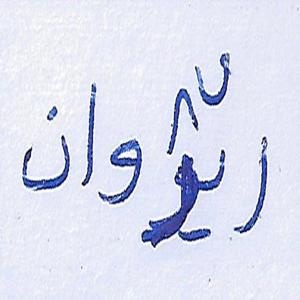 رێژوان